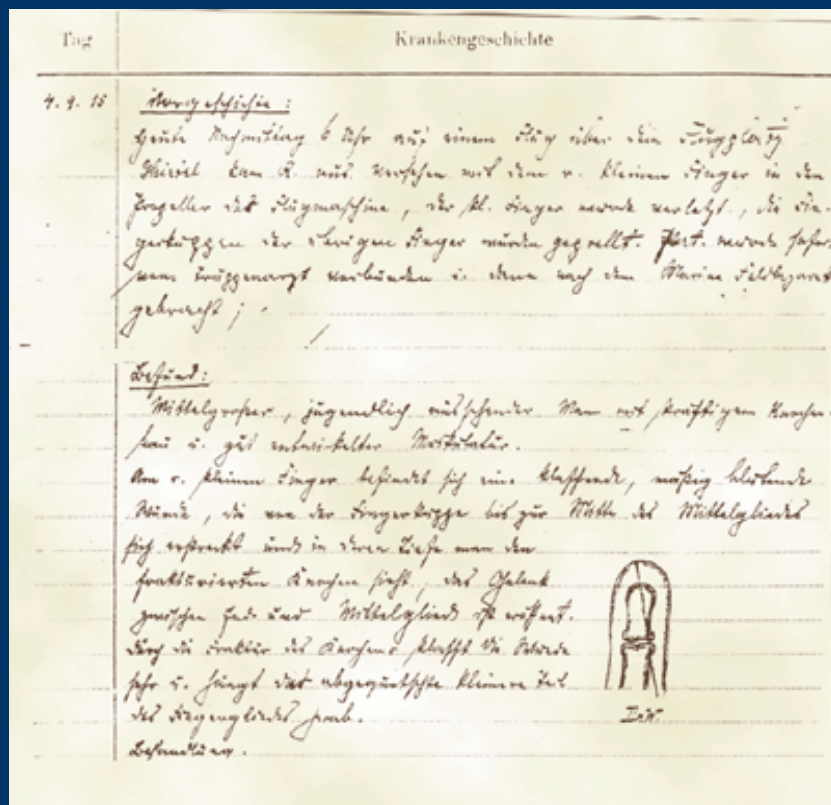 Tag Krankengeschichte
4. 9. 15 Vorgeschichte:
Heute Nachmittag 6 Uhr auf einem Flug über dem Flugplatz
kam R. aus Versehen mit dem r. kleinen Finger in den
Propeller der Flugmaschine, der kl. Finger wurde verletzt, die Fin-
gerkuppen der übrigen Finger wurden geprellt. Pat. wurde sofort
vom Truppenarzt verbunden u. dann nach dem Marine Feldlazarett
gebracht;
Befund:
Mittelgroßer, jugendlich aussehender Mann mit kräftigem Knochen-
bau u. gut entwickelter Muskulatur.
Am r. kleinen Finger befindet sich eine klaffende, mäßig blutende
Wunde, die von der Fingerkuppe bis zur Mitte des Mittelgliedes
sich erstreckt und in deren Tiefe man den
frakturierten Knochen sieht, das Gelenk
zwischen End- und Mittelglied ist eröffnet.
Durch die Fraktur des Knochens klafft die Wunde
sehr u. hängt das abgequetschte kleinere Teil
des Fingergliedes herab.
Behandlung.